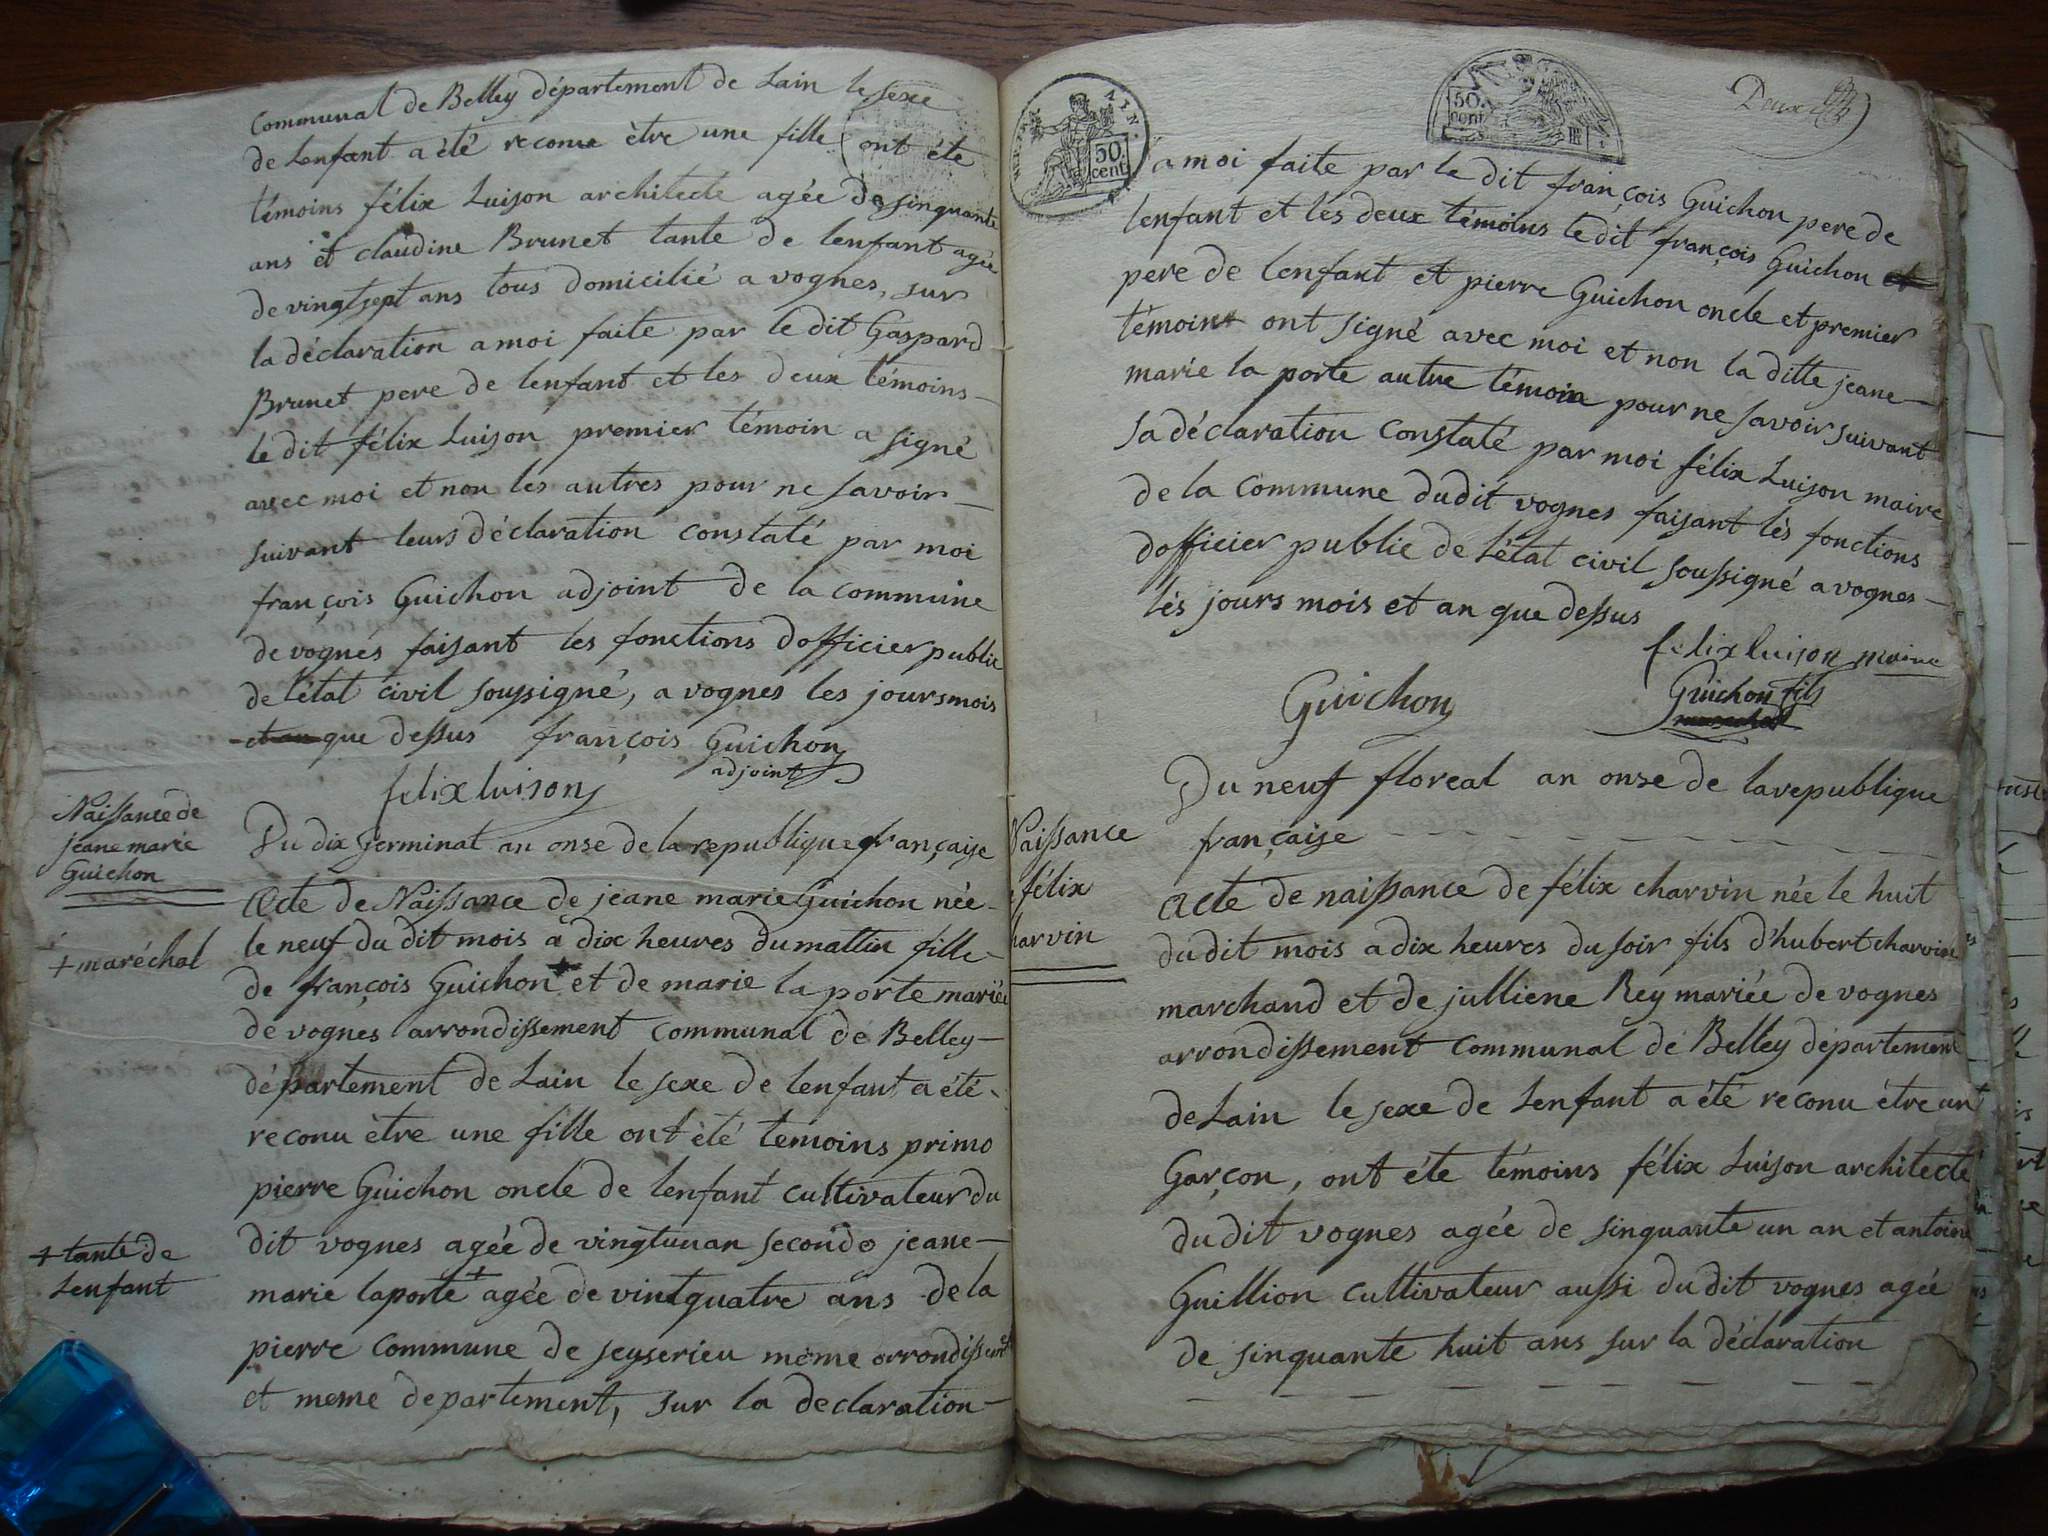 communal de Belley département de Lain le sexe
de Lenfant a été reconu être une fille ont été
témoins félix Luison architecte agée de sinquante
ans et claudine Brunet tante de lenfant agée
de vingtsept ans tous domicilié a vognes, sur
la déclaration a moi faite par le dit Gaspard
Brunet pere de lenfant et les deux témoins
le dit félix Luison premier témoin a signé
avec moi et non les autres pour ne savoir
suivant leurs déclaration constaté par moi
françois Guichon adjoint de la commune
de vognes faisant les fonctions dofficier public
de l'état civil soussigné, a vognes les jours mois
et an que dessus françois Guichon
adjoint
felix luison
Naissance de
jeane marie
Guichon
Du dix germinal an onse de la republique française
Acte de Naissance de jeane marie Guichon née
le neuf du dit mois à dix heures du mattin fille
+ maréchal
de françois Guichon + et de marie la porte mariée
de vognes arrondissement communal de Belley
département de Lain le sexe de lenfant a été
reconu être une fille ont été temoins primo
pierre Guichon oncle de lenfant cultivateur du
dit vognes agée de vingtunan secondo jeane
+ tante de
Lenfant
marie laporte + agée de vintquatre ans de la
pierre commune de seyserieu même arrondissemt
et meme departement, sur la declaration
50
cent
AIN.
50.
cent
Deux
a moi faite par le dit françois Guichon pere de
lenfant et les deux témoins le dit françois Guichon et
pere de lenfant et pierre Guichon oncle et premier
témoin ont signé avec moi et non la ditte jeane
marie la porte autre témoin pour ne savoir suivant
sa déclaration constaté par moi félix Luison maire
de la commune dudit vognes faisant lés fonctions
dofficier public de l'état civil soussigné a vognes
lés jours mois et an que dessus
felix luison maire
Guichon
Guichon fils
Du neuf floreal an onse de la republique
française
Naissance
félix
harvin
Acte de naissance de félix charvin née le huit
du dit mois a dix heures du soir fils d'hubert charvin
marchand et de julliene Rey mariée de vognes
arrondissement communal de Belley département
de Lain le sexe de Lenfant a été reconu être un
Garçon, ont éte témoins félix Luison architecte
du dit vognes agée de sinquante un an et antoine
Guillion cultivateur aussi du dit vognes agée
de sinquante huit ans sur la déclaration